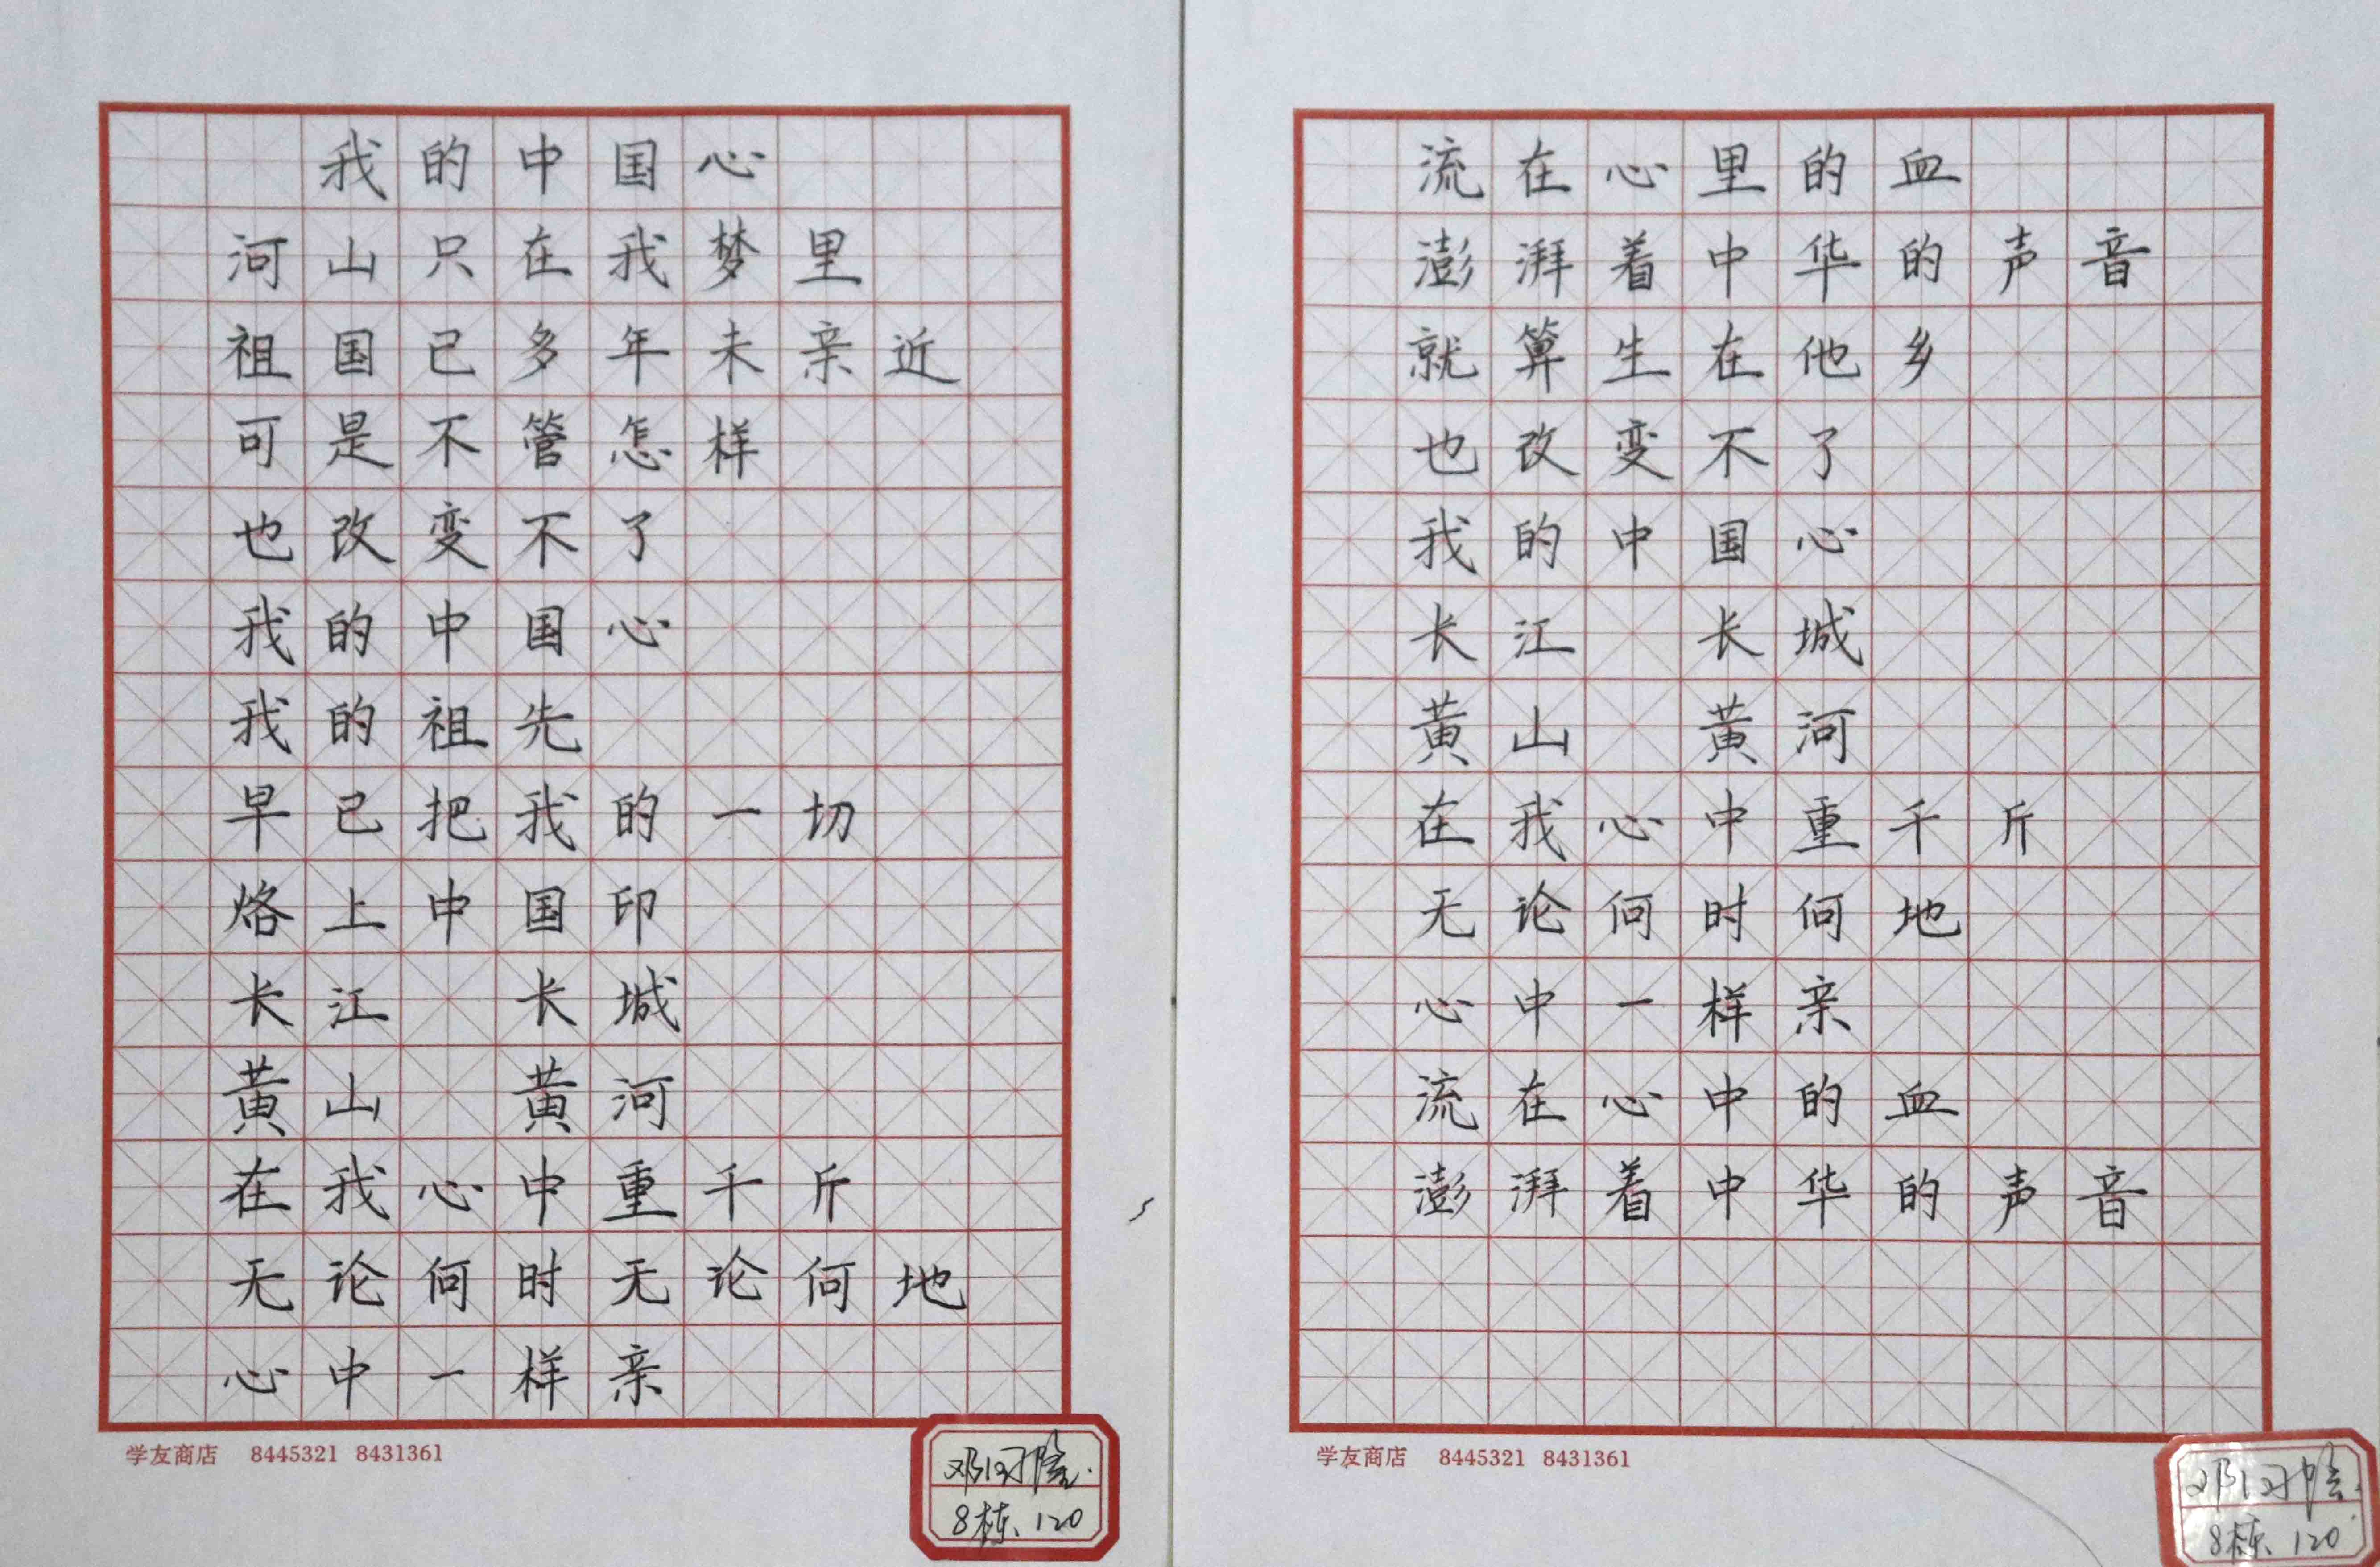 我的中国心
河山只在我梦里
祖国已多年未亲近
可是不管怎样
也改变不了
我的中国心
我的祖先
早已把我的一切
烙上中国印
长江 长城
黄山 黄河
在我心中重千斤
无论何时无论何地
心中一样亲
学友商店 8445321 8431361
8栋. 120
流在心里的血
澎湃着中华的声音
就算生在他乡
也改变不了
我的中国心
长江 长城
黄山 黄河
在我心中重千斤
无论何时何地
心中一样亲
流在心中的血
澎湃着中华的声音
学友商店 8445321 8431361
8栋. 120